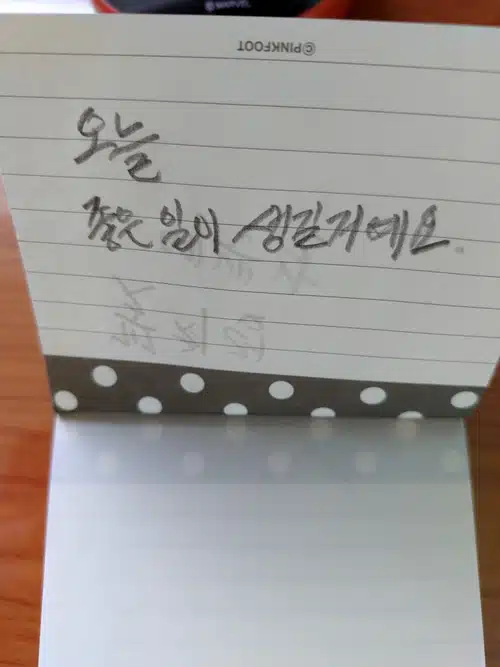 ©PINKFOOT
오늘
좋은 일이 생길거예요.